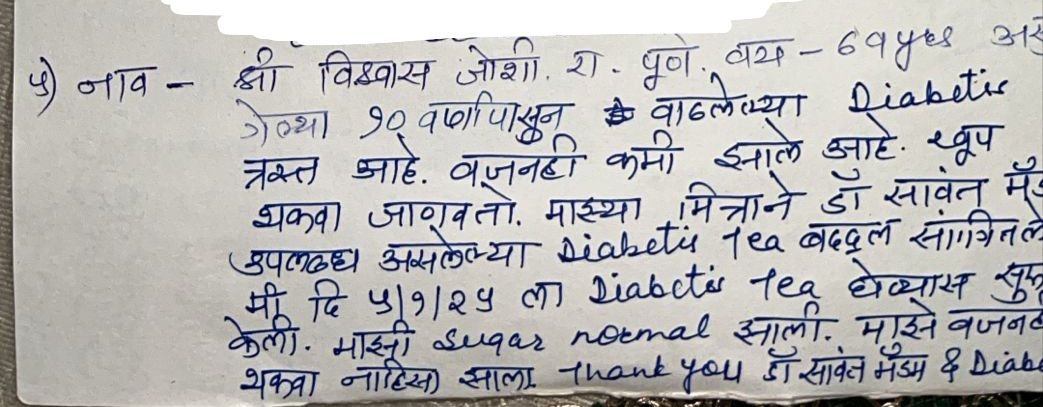 ५) नाव - श्री विश्वास जोशी. रा. पूणे. वय - 69yrs
गेल्या १० वर्षापासून वाढलेल्या Diabetis
त्रस्त आहे. वजनही कमी झाले आहे. खूप
थकवा जाणवतो. माझ्या मित्राने डॉ सावंत मॅड
उपलब्ध असलेल्या Diabetis Tea बद्दल सांगितले
मी दि ५/१/२५ ला Diabetis Tea घेण्यास सुरू
केली. माझी Sugar normal झाली. माझे वजनह
थकवा नाहिसा झाला Thank you डॉ सावंत मॅडम & Diabe